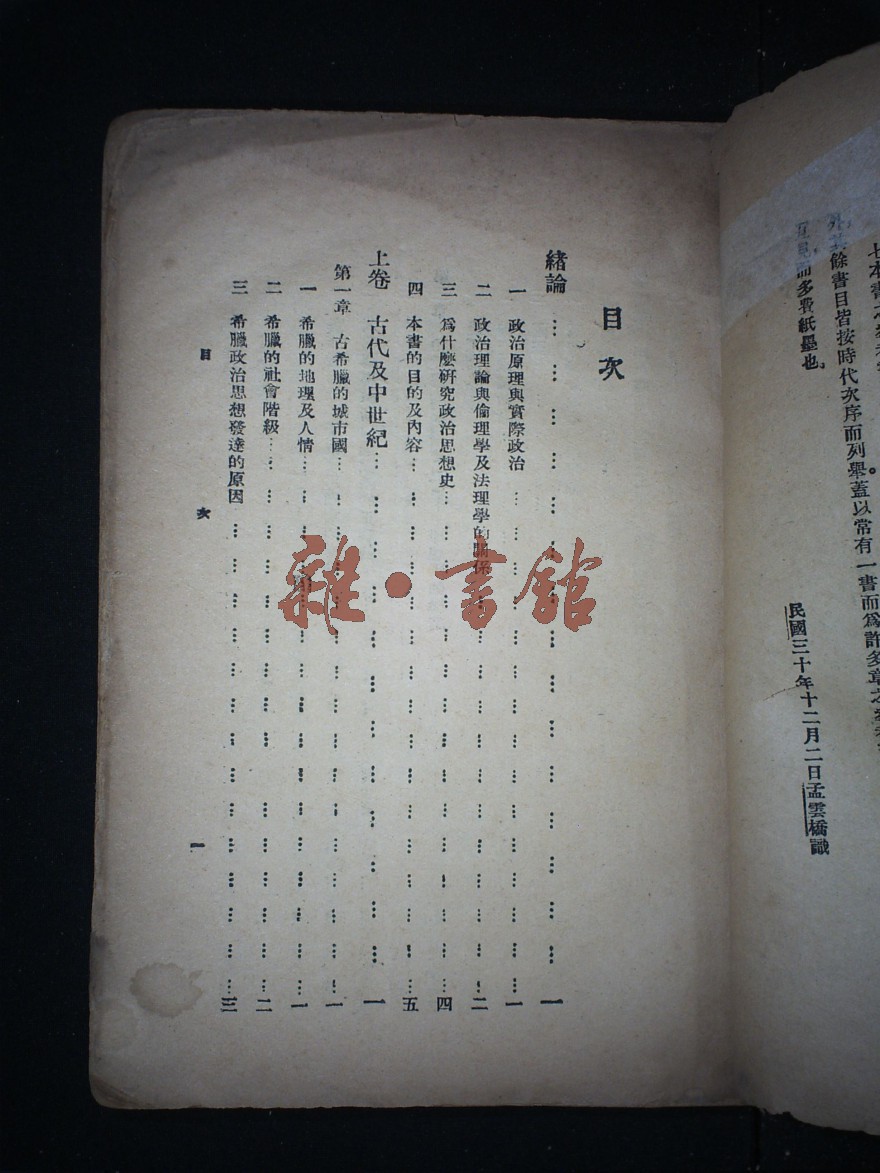 七本書之
外其餘書目皆按時代次序而列舉蓋以常有一書而爲許多章之
而多費紙墨也。
民國三十年十二月二日孟雲橋識
目次
緒論……一
一 政治原理與實際政治……一
二 政治理論與倫理學及法理學的關係……二
三 爲什麼研究政治思想史……四
四 本書的目的及內容……五
上卷 古代及中世紀……一
第一章 古希臘的城市國……一
一 希臘的地理及人情……一
二 希臘的社會階級……二
三 希臘政治思想發達的原因……三
目次
一
雜·書館